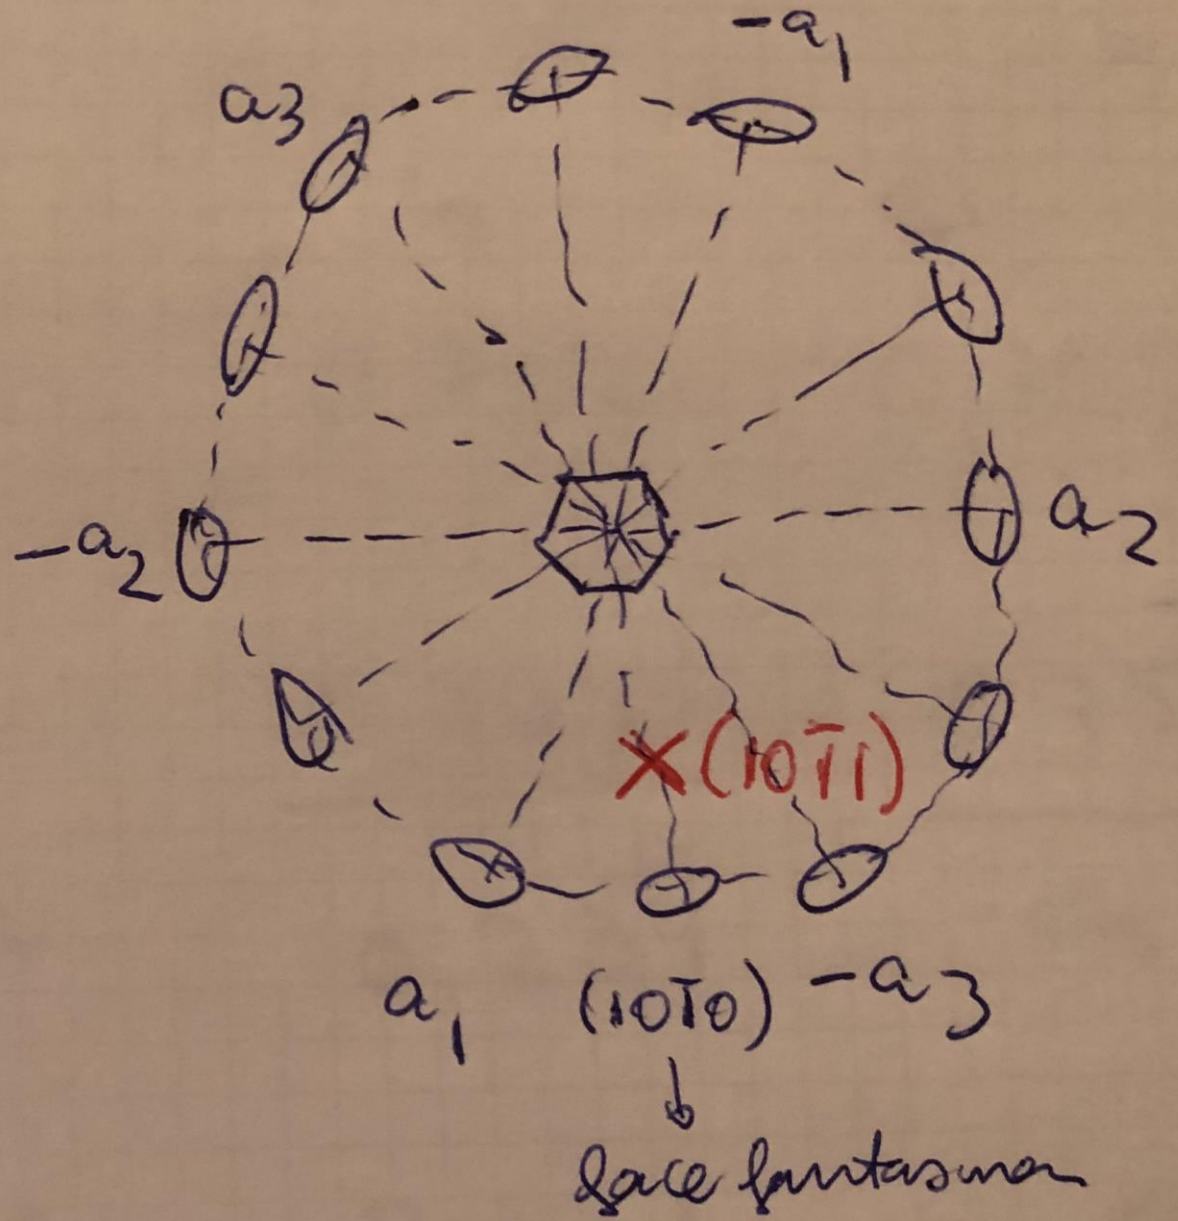 -a1
a3
-a2
a2
(101̄1)
a1
(101̄0)
-a3
↓
face fantasma